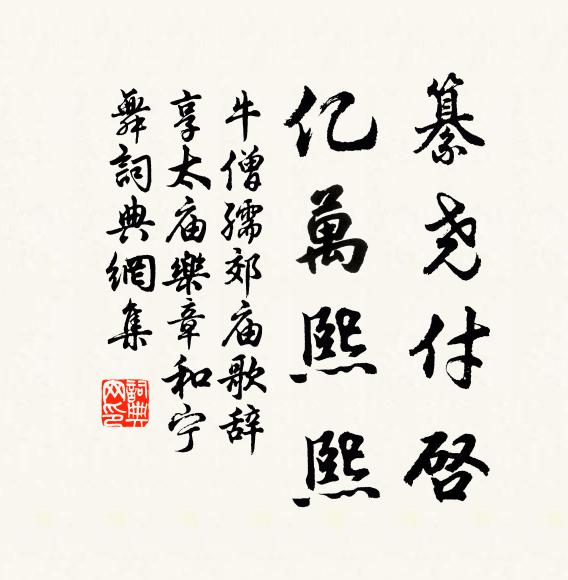 纂尧付启
亿萬熙熙
牛僧孺郊庙歌辞
享太庙樂章和宁
舞詞典網集
詞典网印